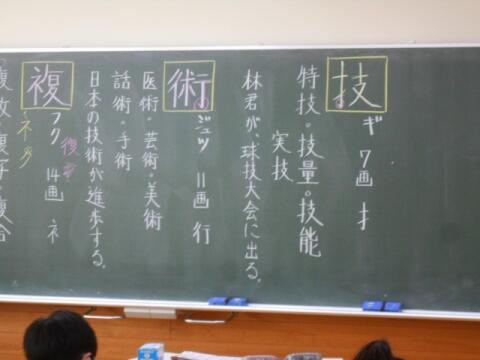 技 ギ 7画 扌
特技。技量。技能
実技
林君が、球技大会に出る。
術 ジュツ 11画 行
医術・芸術・美術
話術・手術
日本の技術が進歩する。
複 フク 14画 ネ
複数・複写・複合